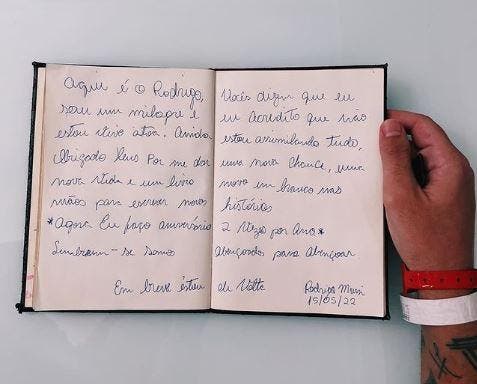 Aqui é o Rodrigo, Vocês dizem que eu
sou um milagre e eu acredito que não
estou vivo atoa. Ainda estou assimilando tudo,
Obrigado Deus Por me dar uma nova chance, uma
nova vida e um livro novo em branco nas
mãos para escrever novas histórias
*Agora Eu faço aniversário 2 Vezes por Ano*
Lembrem-se somos abençoados para abençoar
Em breve estou de Volta Rodrigo Mussi
15/05/22